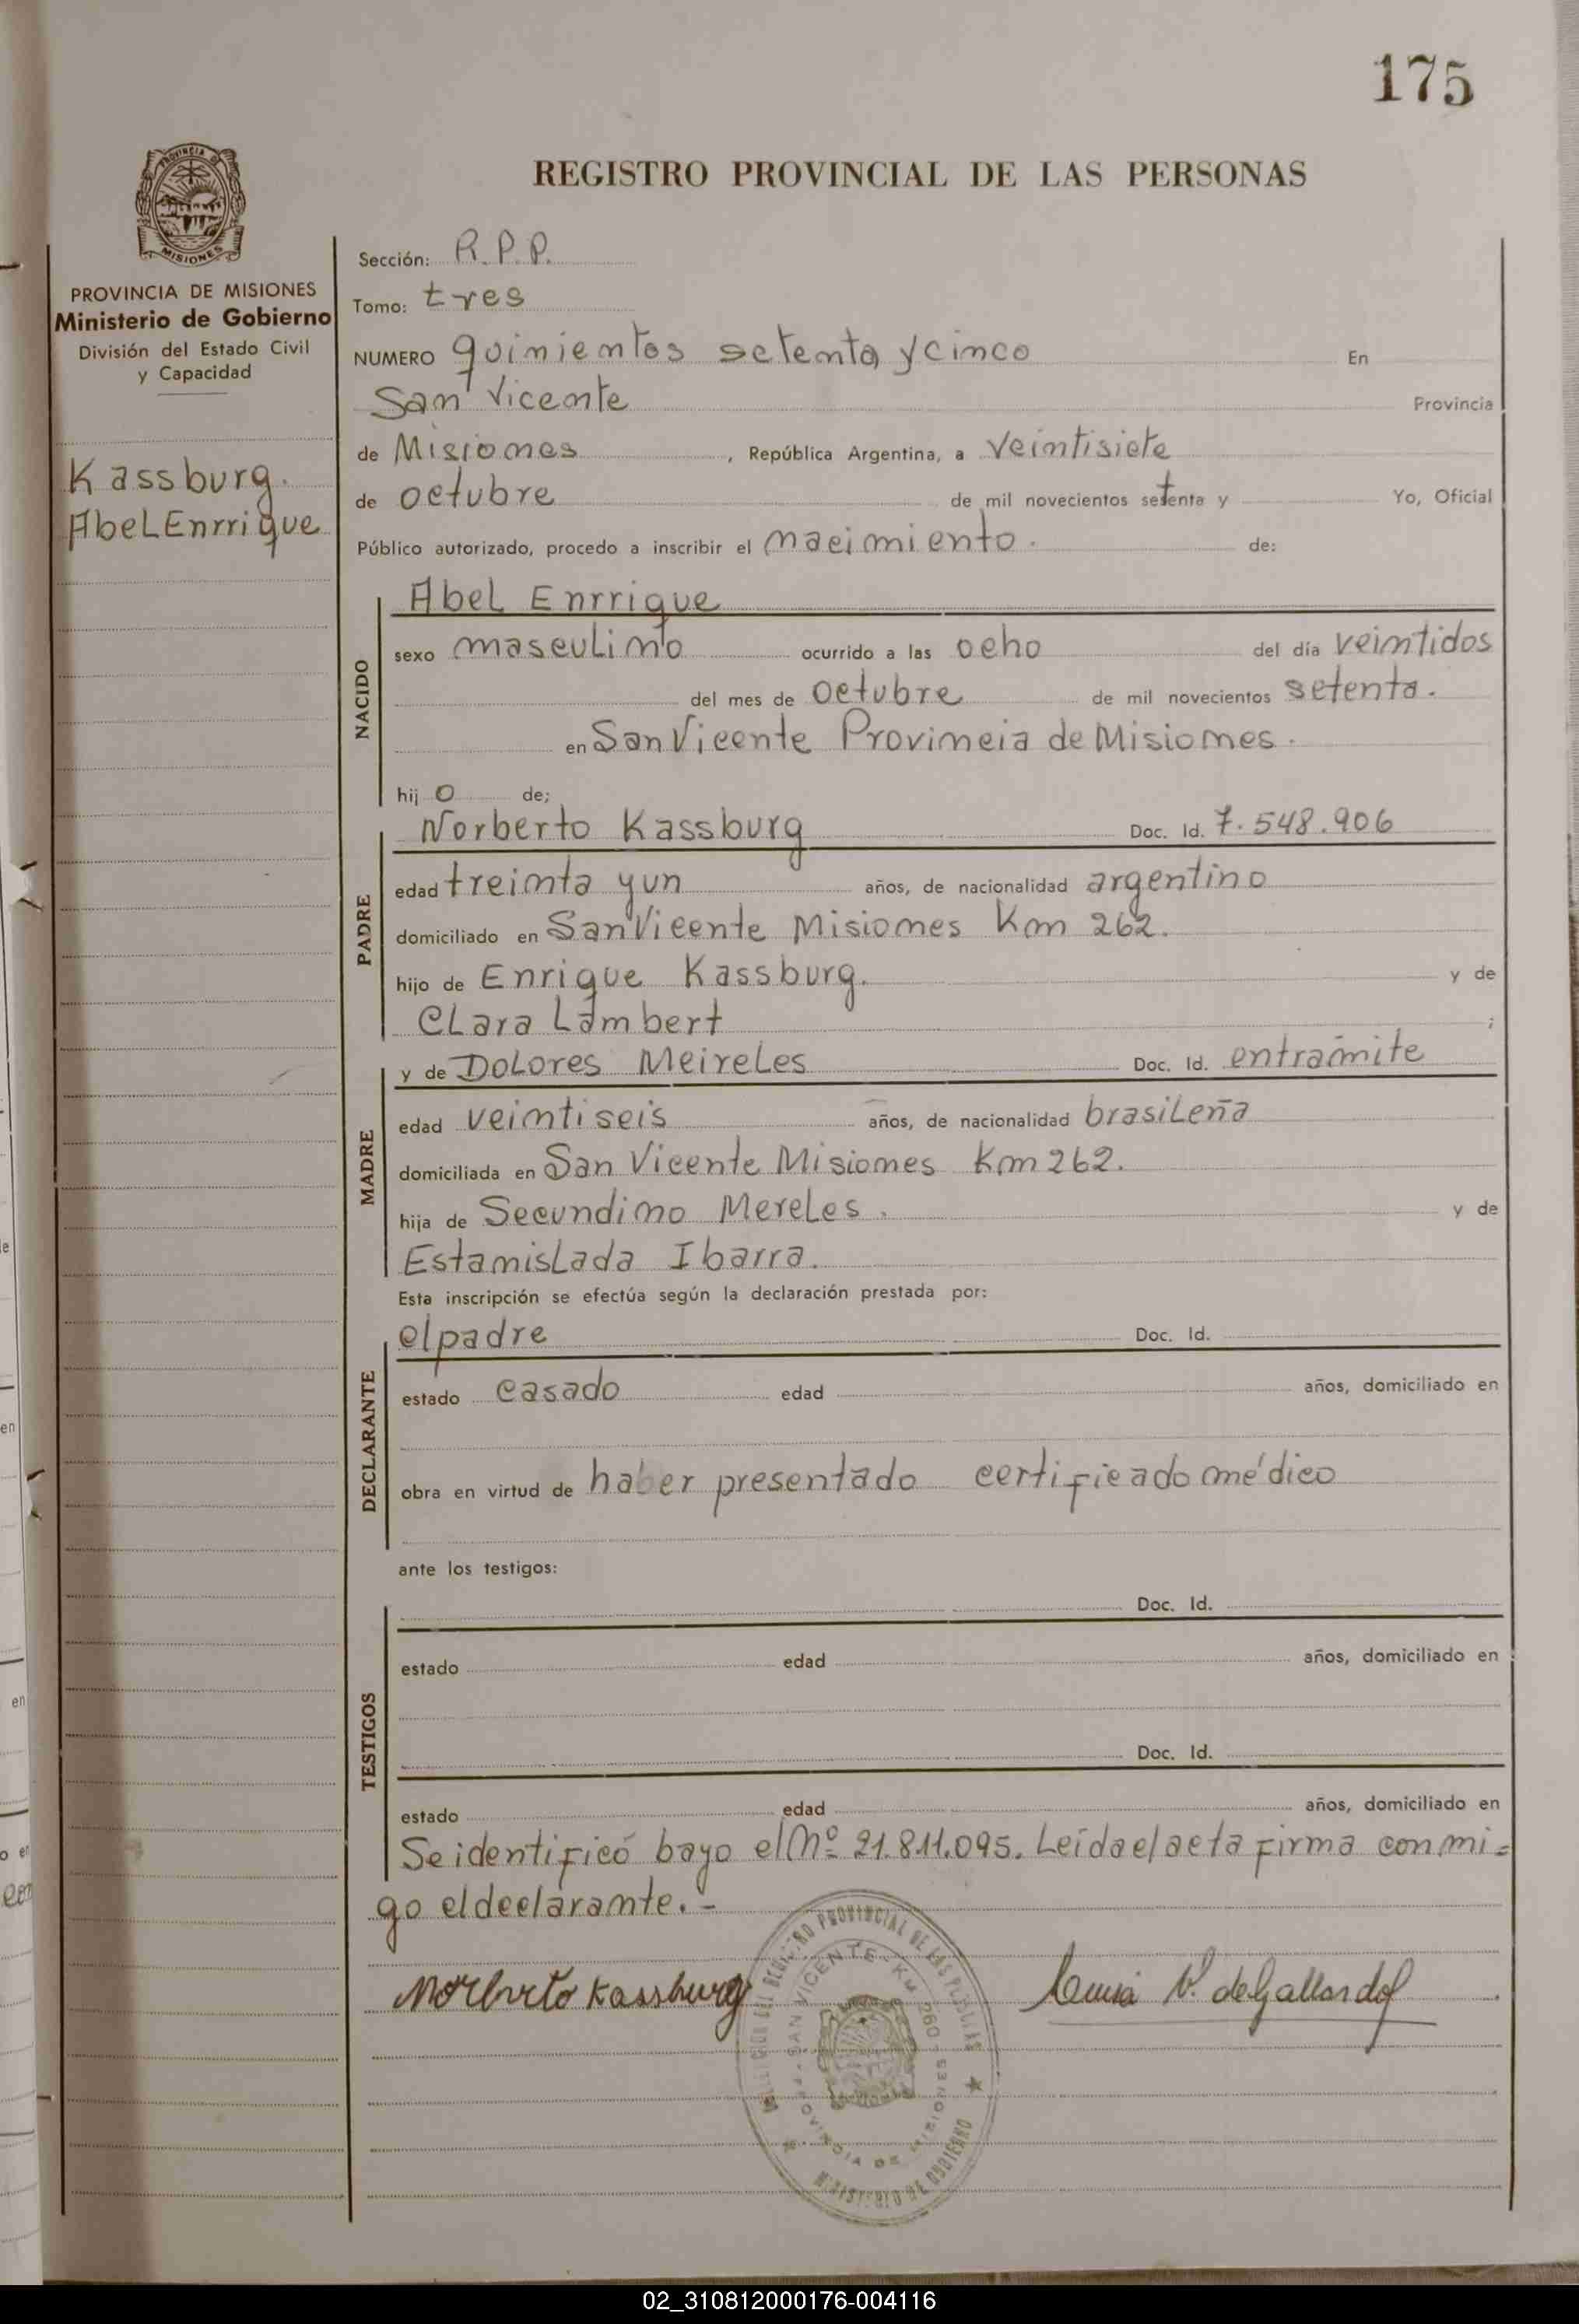 175
REGISTRO PROVINCIAL DE LAS PERSONAS
PROVINCIA DE MISIONES
PROVINCIA DE MISIONES
Ministerio de Gobierno
División del Estado Civil
y Capacidad
Kassburg.
Abel Enrrique
Sección: R.P.P.
Tomo: tres
NUMERO quinientos setenta y cinco En
San Vicente Provincia
de Misiones, República Argentina, a veintisiete
de octubre de mil novecientos setenta y Yo, Oficial
Público autorizado, procedo a inscribir el nacimiento. de:
NACIDO
Abel Enrrique
sexo masculino ocurrido a las ocho del día veintidos
del mes de octubre de mil novecientos setenta.
en San Vicente Provincia de Misiones.
hij o de;
PADRE
Norberto Kassburg Doc. Id. 7.548.906
edad treinta y un años, de nacionalidad argentino
domiciliado en San Vicente Misiones Km 262.
hijo de Enrique Kassburg. y de
Clara Lambert ;
MADRE
y de Dolores Meireles Doc. Id. entramite
edad veintiseis años, de nacionalidad brasileña
domiciliada en San Vicente Misiones Km 262.
hija de Secundino Mereles. y de
Estanislada Ibarra.
Esta inscripción se efectúa según la declaración prestada por:
DECLARANTE
el padre Doc. Id.
estado casado edad años, domiciliado en
obra en virtud de haber presentado certificado médico
ante los testigos:
TESTIGOS
Doc. Id.
estado edad años, domiciliado en
Doc. Id.
estado edad años, domiciliado en
Se identificó bayo el Nº 21.811.095. Leída el acta firma conmi=
go el declarante.-
Norberto Kassburg de Gallardo
REGISTRO PROVINCIAL DE LAS PERSONAS
SAN VICENTE - Km 260 - PROVINCIA DE MISIONES
MINISTERIO DE GOBIERNO
02_310812000176-004116